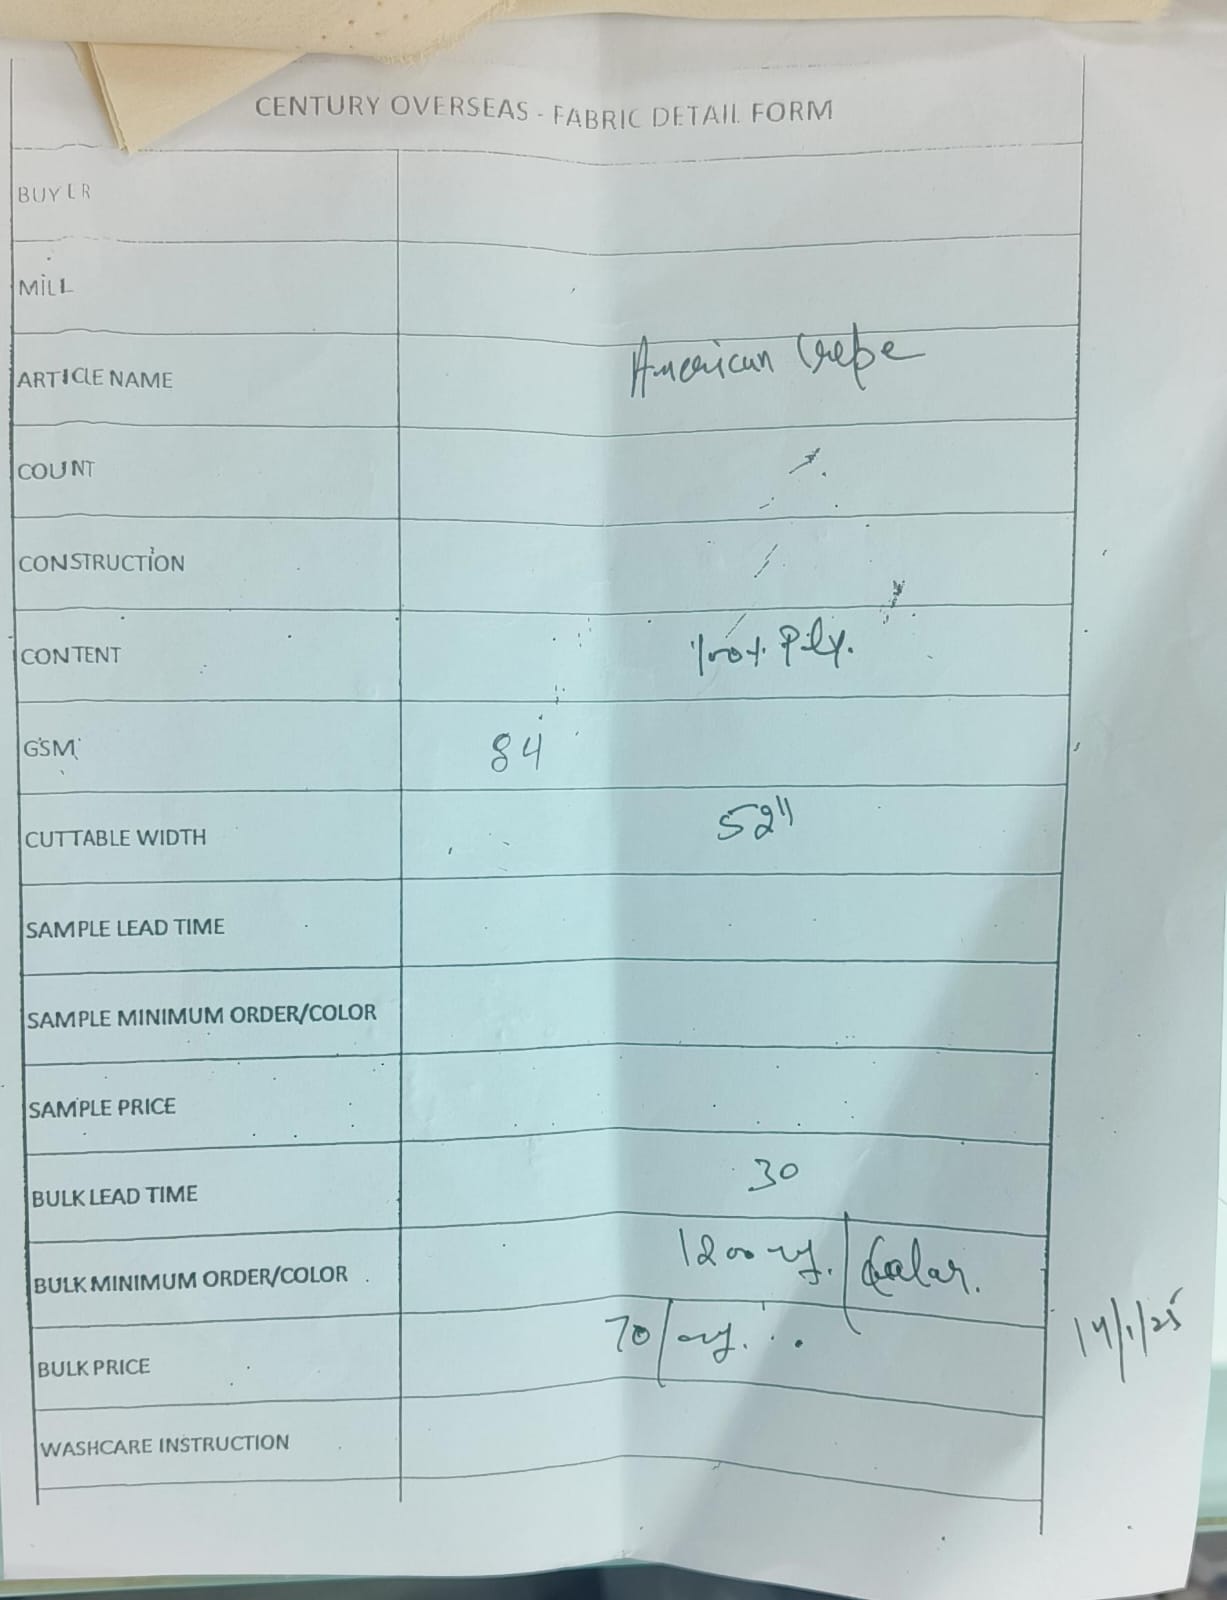 CENTURY OVERSEAS - FABRIC DETAIL FORM
BUYER
MILL
ARTICLE NAME American Crepe
COUNT
CONSTRUCTION
CONTENT 100% Poly.
GSM 84
CUTTABLE WIDTH 52"
SAMPLE LEAD TIME
SAMPLE MINIMUM ORDER/COLOR
SAMPLE PRICE
BULK LEAD TIME 30
BULK MINIMUM ORDER/COLOR 1200
BULK PRICE 70/
WASHCARE INSTRUCTION